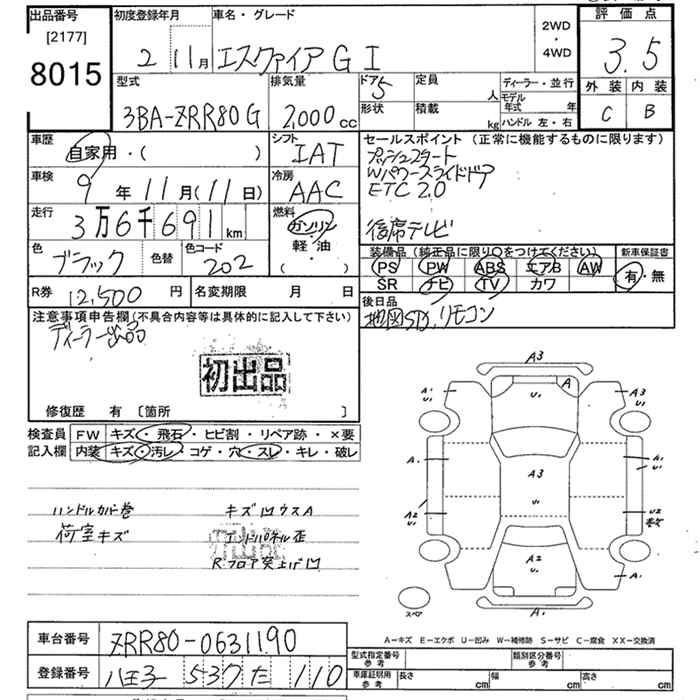 出品番号
[2177]
8015
初度登録年月
2 11月
車名・グレード
エスクァイア G I
2WD
・
4WD
評価点
3.5
外装 内装
C B
型式
3BA-ZRR80G
排気量
2,000cc
ドア 5
形状
定員
人
積載
kg
ディーラー・並行
モデル年式 年
ハンドル 左・右
車歴
自家用・( )
シフト
IAT
車検
9年11月(11日)
冷房
AAC
走行
3万6千691km
燃料
ガソリン
・
軽・油
( )
色
ブラック
色替
色コード
202
R券 12,500円
名変期限 月 日
セールスポイント(正常に機能するものに限ります)
プッシュスタート
Wパワースライドドア
ETC 2.0
後席テレビ
装備品(純正品に限り○をつけてください)
新車保証書
PS PW ABS エアB AW
SR ナビ TV カワ
有・無
後日品
地図SD,リモコン
注意事項申告欄(不具合内容等は具体的に記入して下さい)
ディーラー出品
初出品
修復歴 有 〔箇所 〕
検査員
記入欄
FW キズ・飛石・ヒビ割・リペア跡・×要
内装 キズ・汚レ・コゲ・穴・スレ・キレ・破レ
ハンドルカバー巻
荷室キズ
キズ凹ウスA
エンドパネル歪
Rフロア突上げ凹
A3
U1
A
A1
U1
A3
U1
A1
A1
U1
A3
U1
A2
U1
U2
A2
U1
A1
A1
スペア
A-キズ E-エクボ U-凹み W-補修跡 S-サビ C-腐食 XX-交換済
車台番号 ZRR80-0631190
登録番号 八王子 537 た 110
型式指定番号
参考
類別区分番号
参考
車庫証明用
参考
長さ cm
幅 cm
高さ cm